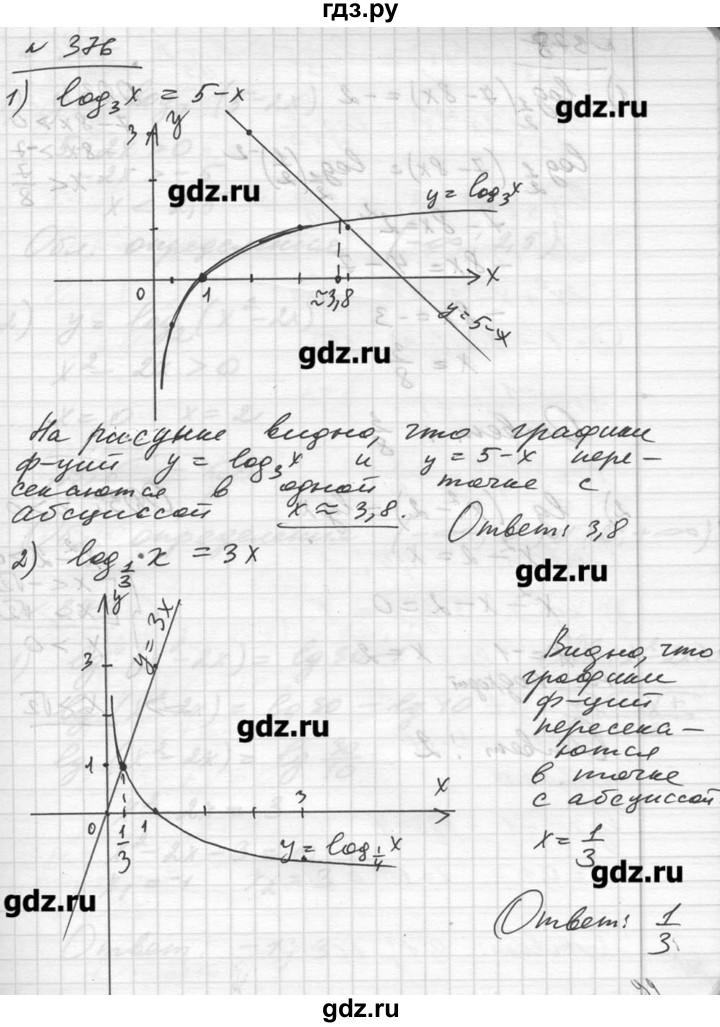 гдз.ру
№ 376
1) log₃x = 5-x
gdz.ru
y
3
gdz.ru
y = log₃x
0
1
≈3,8
x
y = 5-x
gdz.ru
На рисунке видно, что графики
ф-ций y = log₃x и y = 5-x пере-
секаются в одной точке с
абсциссой x ≈ 3,8.
Ответ: 3,8
gdz.ru
2) log_{1/3} x = 3x
y
y = 3x
3
gdz.ru
1
x
0
1/3
1
3
y = log_{1/4} x
Видно, что
графики
ф-ций
пересека-
ются
в точке
с абсциссой
x = 1/3
gdz.ru
gdz.ru
Ответ: 1/3
gdz.ru